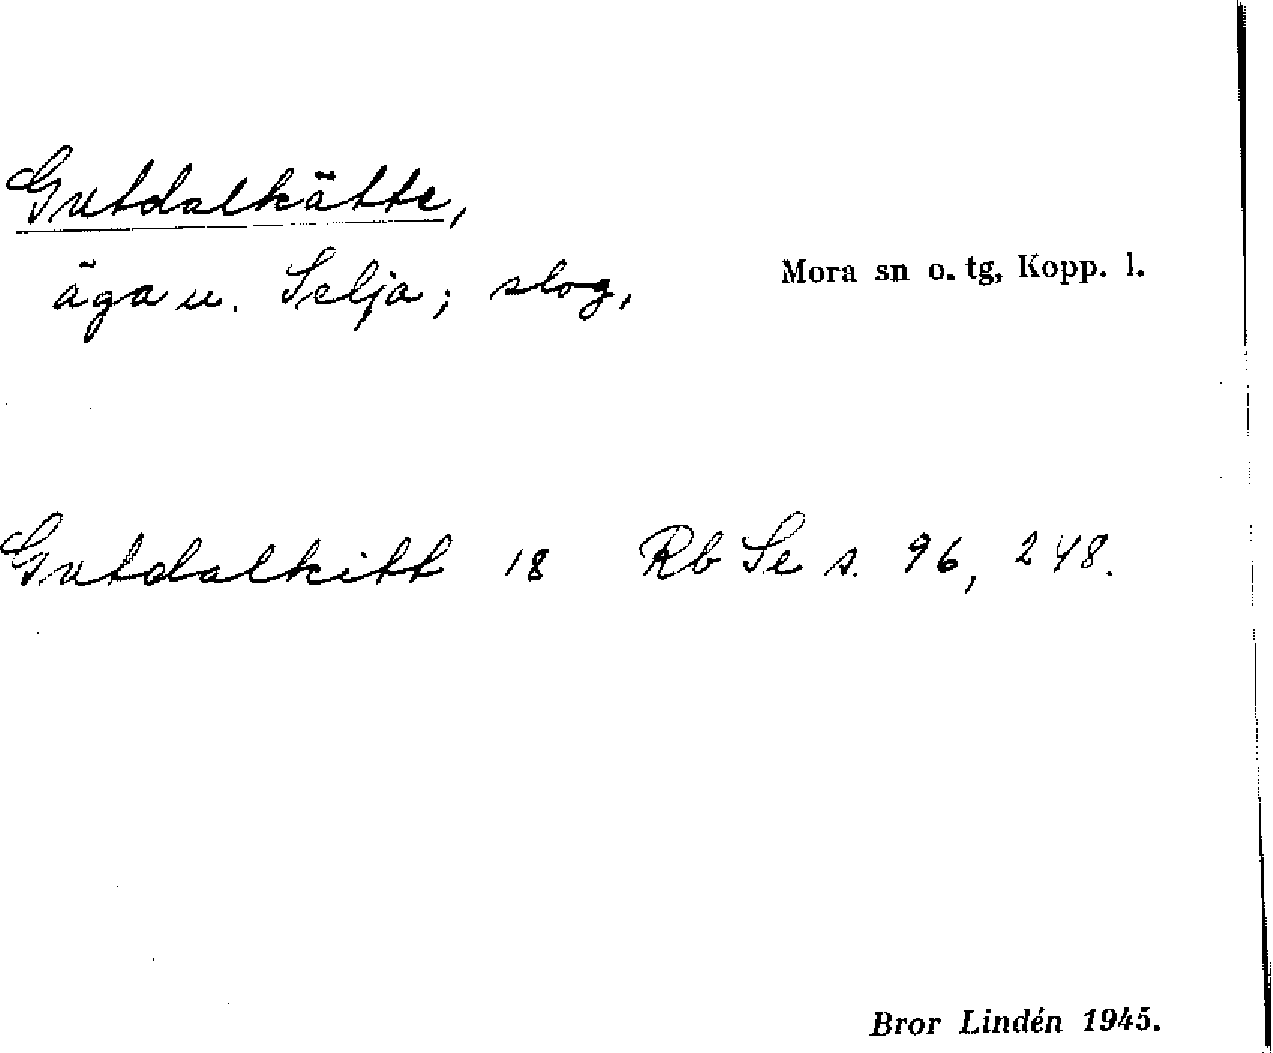 Gutdalkätte,
äga u. Selja; slog,
Mora sn o. tg, Kopp. l.
Gutdalkitt 18 Rb Se s. 96, 248.
Bror Lindén 1945.